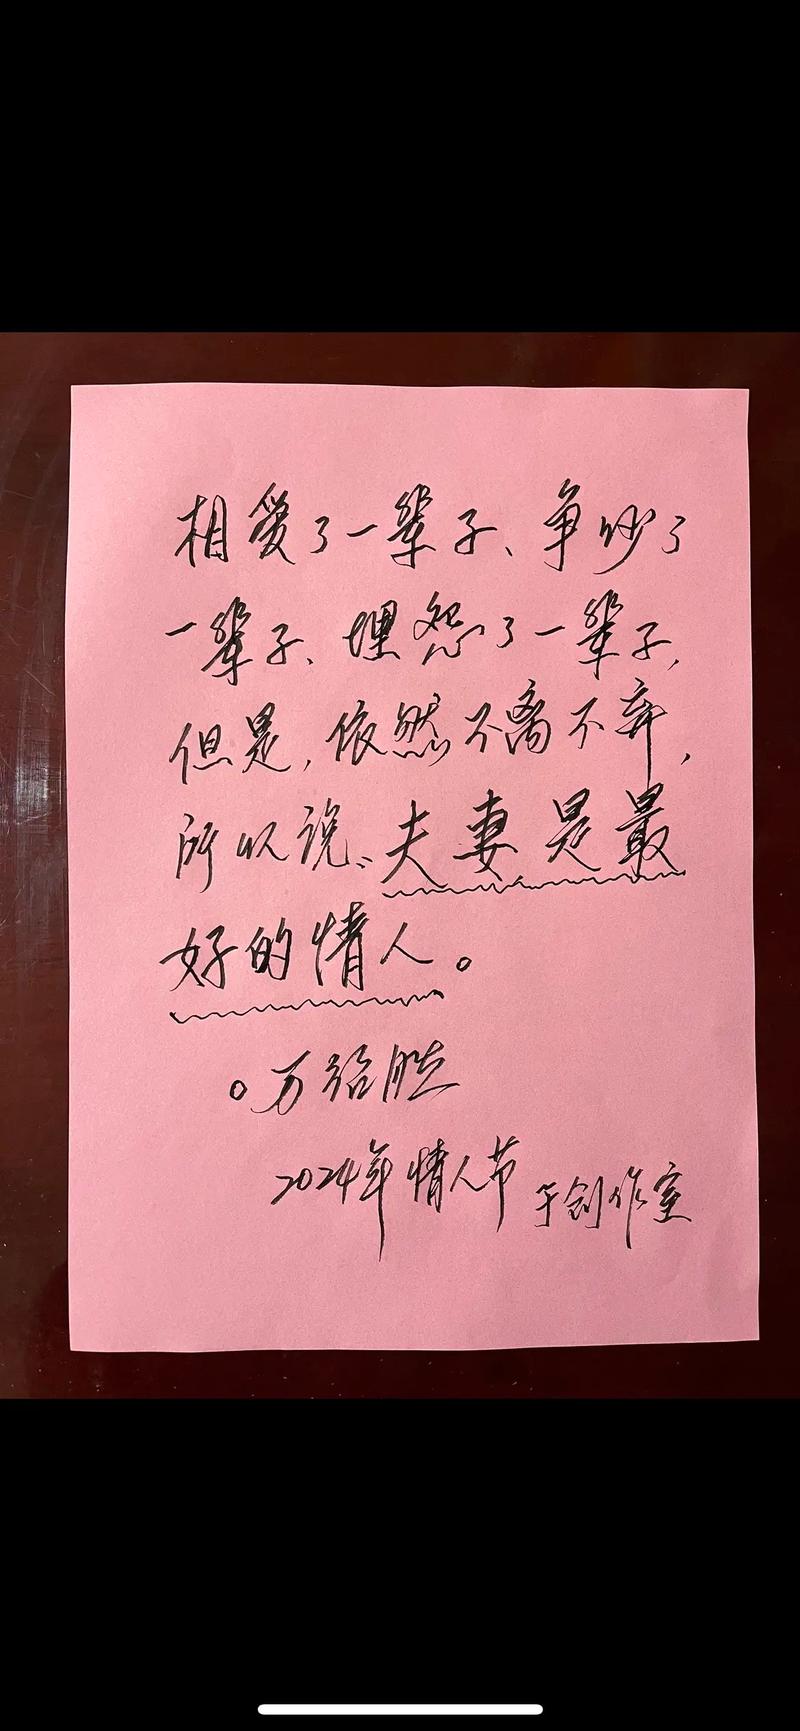 相爱了一辈子、争吵了
一辈子、埋怨了一辈子,
但是,依然不离不弃,
所以说、夫妻是最
好的情人。
。万绍胜
2024年情人节 于创作室